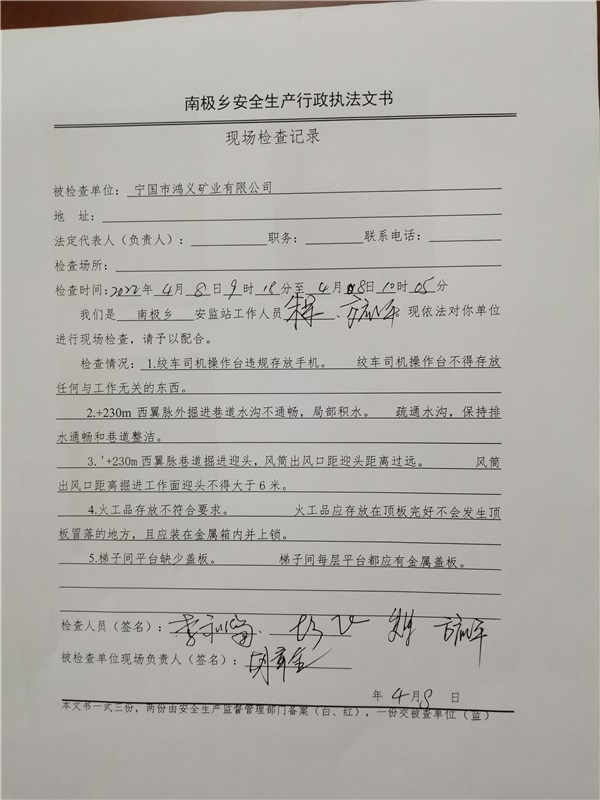 南极乡安全生产行政执法文书
现场检查记录
被检查单位：宁国市鸿义矿业有限公司
地 址：
法定代表人（负责人）： 职务： 联系电话：
检查场所：
检查时间：2022年 4月 8日 9时 18分至 4月 8日 10时 05分
我们是 南极乡 安监站工作人员 、 现依法对你单位
进行现场检查，请予以配合。
检查情况：1.绞车司机操作台违规存放手机。 绞车司机操作台不得存放
任何与工作无关的东西。
2.+230m 西翼脉外掘进巷道水沟不通畅，局部积水。 疏通水沟，保持排
水通畅和巷道整洁。
3.'+230m 西翼脉巷道掘进迎头，风筒出风口距迎头距离过远。 风筒
出风口距离掘进工作面迎头不得大于 6 米。
4.火工品存放不符合要求。 火工品应存放在顶板完好不会发生顶
板冒落的地方，且应装在金属箱内并上锁。
5.梯子间平台缺少盖板。 梯子间每层平台都应有金属盖板。
检查人员（签名）：
被检查单位现场负责人（签名）：
年 4月 8 日
本文书一式三份，两份由安全生产监督管理部门备案（白、红），一份交被检查单位（蓝）